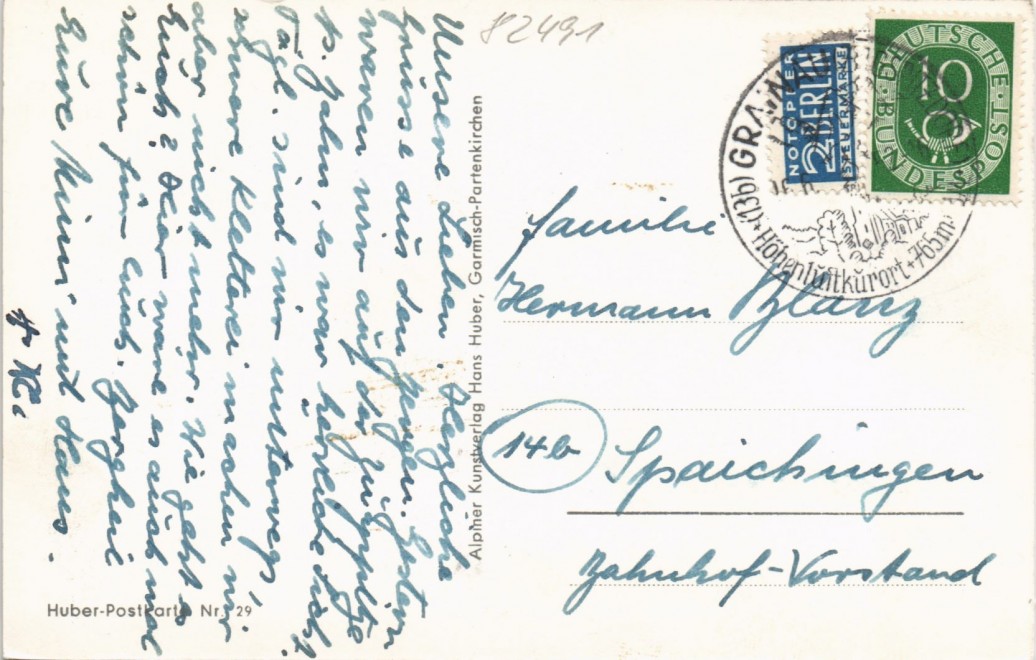 82491
Unsere Lieben. Herzliche
Grüsse aus den Bergen. Gestern
waren wir auf der Zugspitze
ps. Bahn, es war herrliche Sicht.
Tägl. sind wir unterwegs,
schwere Klettereimachen wir
aber nicht mehr. Wie geht es
Euch? Hier wäre es auch mal
schön für Euch. Bergheil
Eure Mimi und Hans.
Alpiner Kunstverlag Hans Huber, Garmisch-Partenkirchen
Huber-Postkarte Nr. 29
NOTOPFER
2 BERLIN
STEUERMARKE
DEUTSCHE BUNDESPOST
10
(13b) GRAINAU
Höhenluftkurort + 765m
Familie
Hermann
14b
Spaichingen
Bahnhof-Vorstand